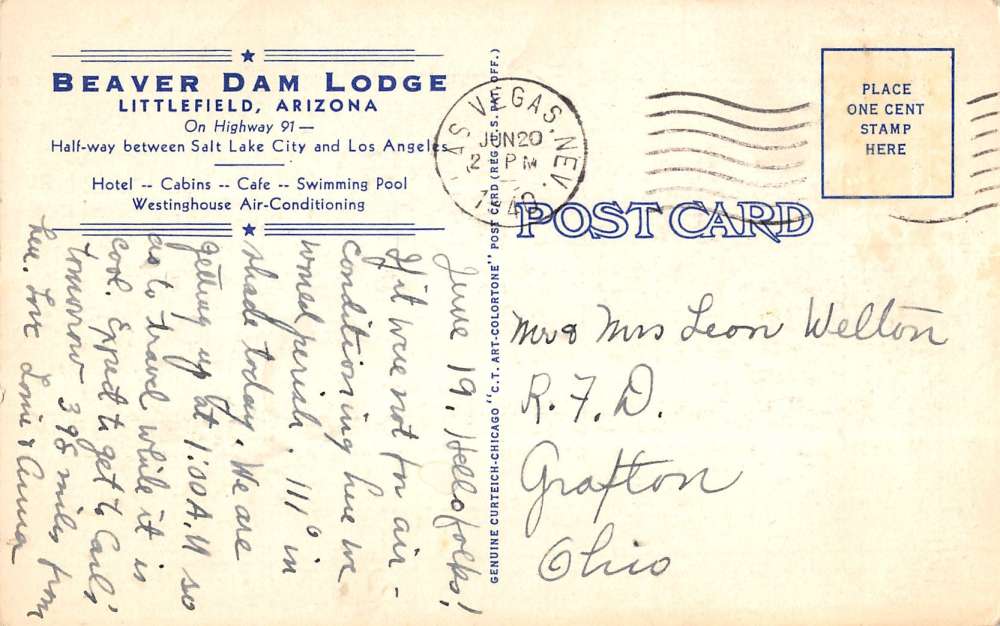 BEAVER DAM LODGE
LITTLEFIELD, ARIZONA
On Highway 91—
Half-way between Salt Lake City and Los Angeles
Hotel -- Cabins -- Cafe -- Swimming Pool
Westinghouse Air-Conditioning
June 19. Hello folks!
If it were not for air-
conditioning here we
would perish. 111° in
shade today. We are
getting up at 1:00 A.M so
as to travel while it is
cool. Expect to get to Carls'
tomorrow 398 miles from
here. Love Lonie & Anna
GENUINE CURTEICH-CHICAGO "C.T. ART-COLORTONE" POST CARD (REG. U.S. PAT. OFF.)
LAS VEGAS, NEV.
JUN 20
2 PM
POST CARD
PLACE
ONE CENT
STAMP
HERE
Mr & Mrs Leon Welton
R.F.D.
Grafton
Ohio